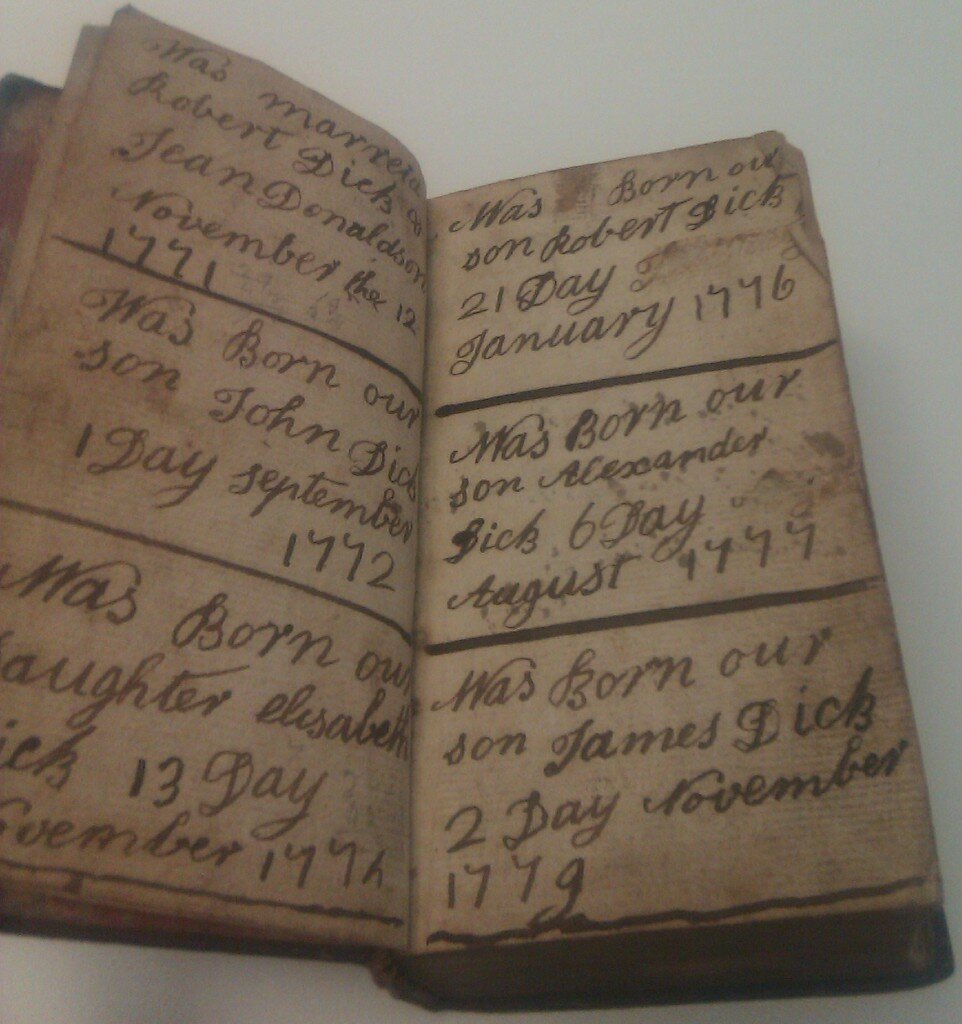 Was marreid
Robert Dick &
Jean Donaldson
November the 12
1771
Was Born our
son John Dick
1 Day september
1772
Was Born our
aughter elisabeth
ick 13 Day
ovember 1774
Was Born our
son Robert Dick
21 Day
January 1776
Was Born our
son Alexander
Dick 6 Day
August 1777
Was Born our
son James Dick
2 Day November
1779